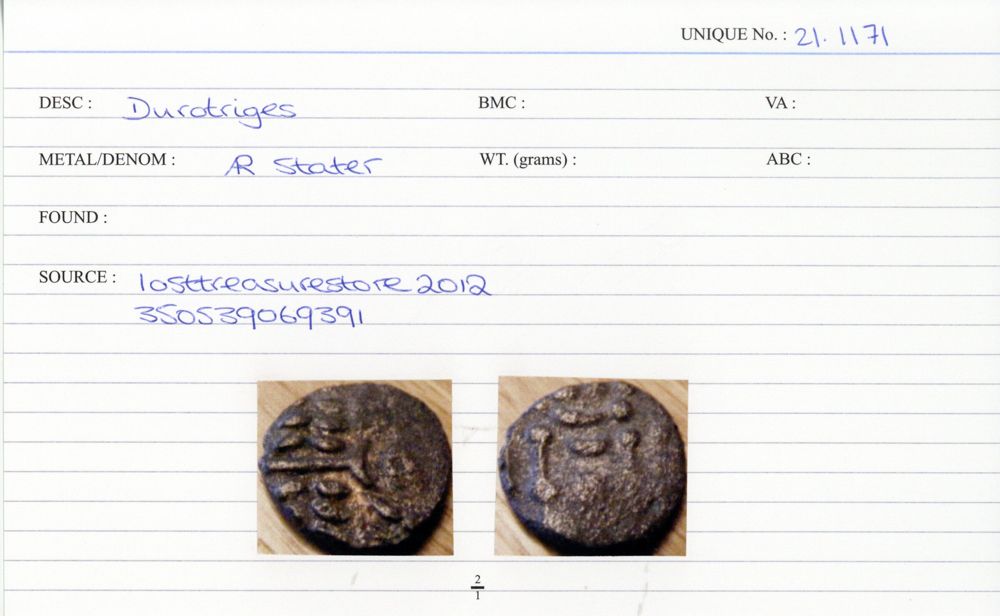 UNIQUE No. : 21.1171
DESC : Durotriges BMC : VA :
METAL/DENOM : AR Stater WT. (grams) : ABC :
FOUND :
SOURCE : losttreasurestore 2012
350539069391
2
1